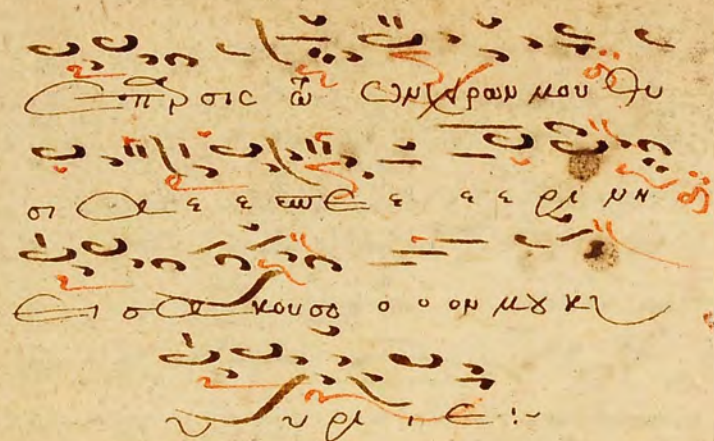 Επαρσις τῶ ων χειρων μου θυ
σι α ε ε επε ε ε ε ρι νη
Ει σα κουσο ο ο ον μου κυ
υ υ ρι ι ε :~